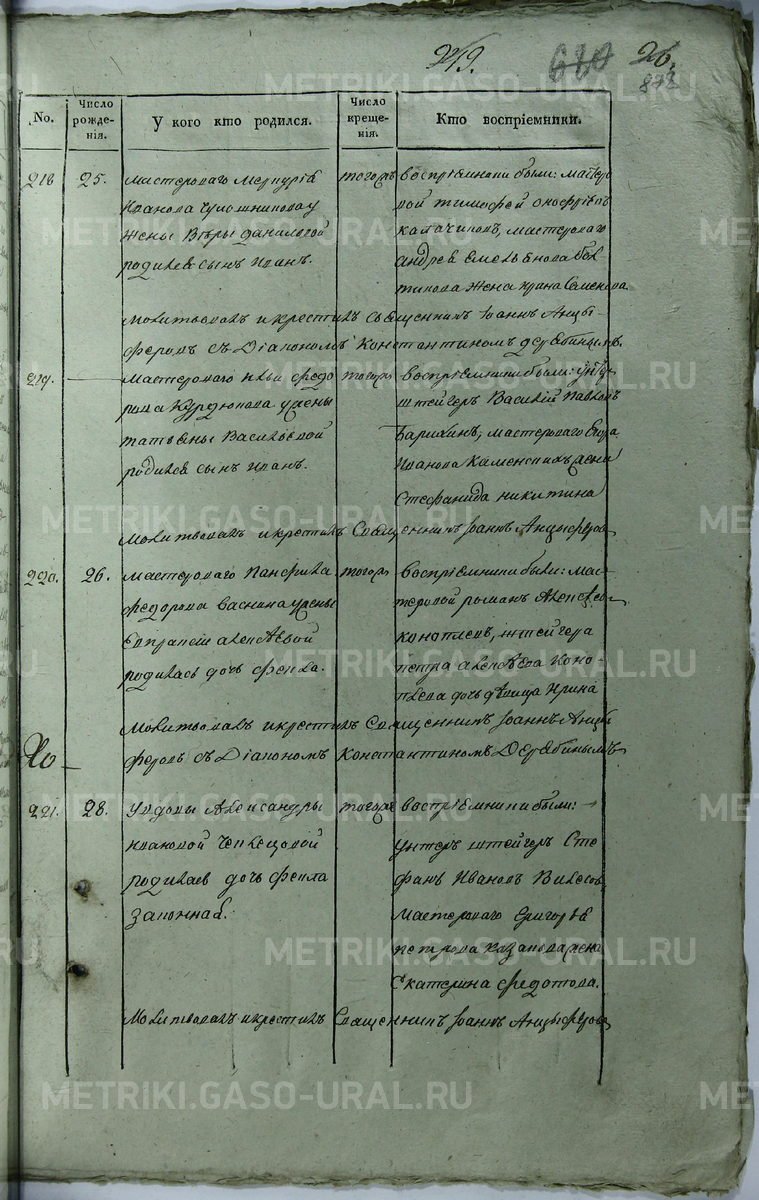 219. 680 26.
872
No.
Число рожденія.
У кого кто родился.
Число крещенія.
Кто воспріемники.
218 25.
мастероваго Меркурія
Иванова Чулошникова у
жены Вѣры Даниловой
родился сынъ Иванъ.
тогожъ
воспріемники были: масте
вой Тимофей
Калачиковъ, мастероваго
Андрея Емельянова
жена Ирина Семенова
Молитвовалъ и крестилъ Священникъ Іоаннъ Анцы-
феровъ съ Діакономъ Константиномъ Дерябинымъ.
219. —
Мастероваго Ильи Федо
рова Курдюкова у жены
Татьяны Васильевой
родился сынъ Иванъ.
тогожъ
воспріемники были: унтеръ
штейгеръ Василій Павловъ
Барихинъ, мастероваго Егора
Иванова Каменскихъ жена
Стефанида Никитина
Молитвовалъ и крестилъ Священникъ Іоаннъ Анцыферовъ
220. 26.
Мастероваго Панфила
Федорова Васнина у жены
Евпраксіи Алексѣевой
родилась дочь Фекла.
тогожъ
воспріемники были: Мас-
теровой Романъ Алексѣевъ
Коноплевъ, штейгера
Петра Алексѣева Коно-
плева дочь дѣвица Ирина
Молитвовалъ и крестилъ Священникъ Іоаннъ Анцы
феровъ съ Діакономъ Константиномъ Дерябинымъ
221. 28.
У вдовы Александры
Ивановой Чепвецовой
родилась дочь Фекла
законная.
тогожъ
воспріемники были: —
Унтеръ штейгеръ Сте
фанъ Ивановъ
Мастероваго Григорья
Петрова Казакова жена
Екатерина Федотова.
Молитвовалъ и крестилъ Священникъ Іоаннъ Анцыферовъ
METRIKI.GASO-URAL.RU